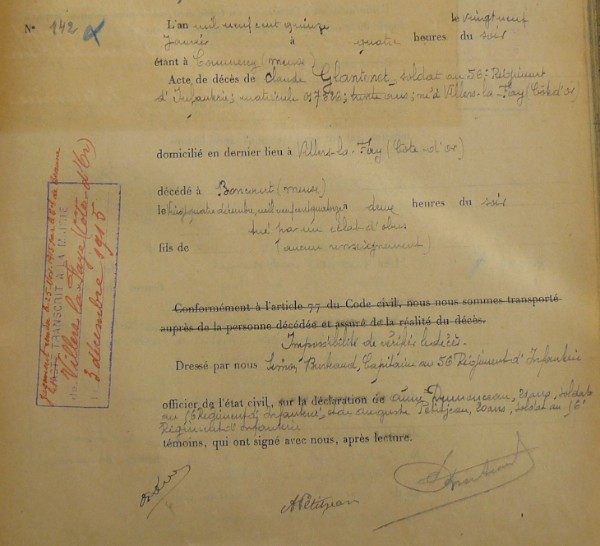 N° 142
L'an mil neuf cent quinze le vingt neuf
Janvier à quatre heures du soir
étant à Commercy (meuse)
Acte de décès de Claude Glantenet, soldat au 56e Régiment
d'Infanterie; matricule 017826; trente ans; né à Villers-la-Faÿ (Côte d'or)
domicilié en dernier lieu à Villers-la-Faÿ (Côte-d'or)
décédé à Boncourt (meuse)
le vingt quatre décembre, mil neuf cent quatorze à deux heures du soir
tué par un éclat d'obus
fils de (aucun renseignement)
Conformément à l'article 77 du Code civil, nous nous sommes transporté
auprès de la personne décédée et assuré de la réalité du décès.
Impossibilité de vérifier le décès.
Dressé par nous Bertrand, Capitaine au 56 Régiment d'Infanterie
officier de l'état civil, sur la déclaration de ans, soldat
au 56 Régiment d'Infanterie, et de Auguste Petitjean, 20 ans, soldat au 56e
Régiment d'Infanterie
témoins, qui ont signé avec nous, après lecture.
APetitjean
TRANSCRIT À LA MAIRIE
Villers la Faye (Côte-d'Or)
3 décembre 1915